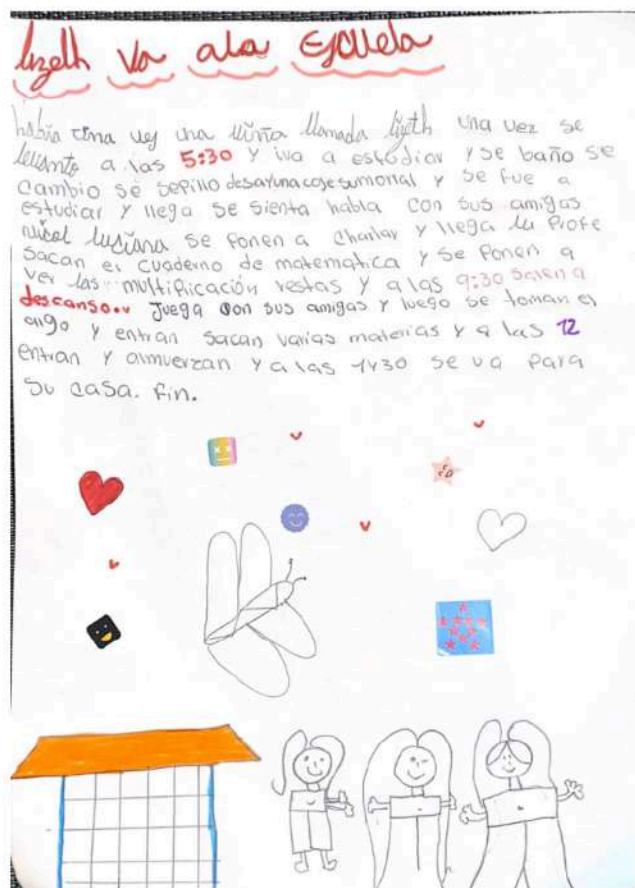 lizeth va ala Escuela
había una vez una niña llamada lizeth una vez se
levanto a las 5:30 y iva a estudiar y se baño se
cambio se sepillo desayuna cose su morral y se fue a
estudiar y llega se sienta habla con sus amigas
nicol luciana se ponen a charlar y llega la profe
sacan el cuaderno de matematica y se ponen a
ver las multificación restas y a las 9:30 salen a
descanso.. juega con sus amigas y luego se toman el
algo y entran sacan varias materias y a las 12
entran y almuerzan y a las 1y30 se va para
su casa. Fin.